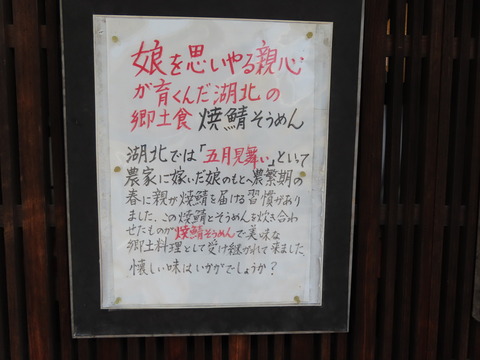 娘を思いやる親心
が育くんだ湖北の
郷土食 焼鯖そうめん
湖北では「五月見舞い」といって
農家に嫁いだ娘のもとへ農繁期の
春に親が焼鯖を届ける習慣があり
ました。この焼鯖とそうめんを炊き合わ
せたものが焼鯖そうめんで美味な
郷土料理として受け継がれて来ました。
懐しい味はいかがでしょうか?